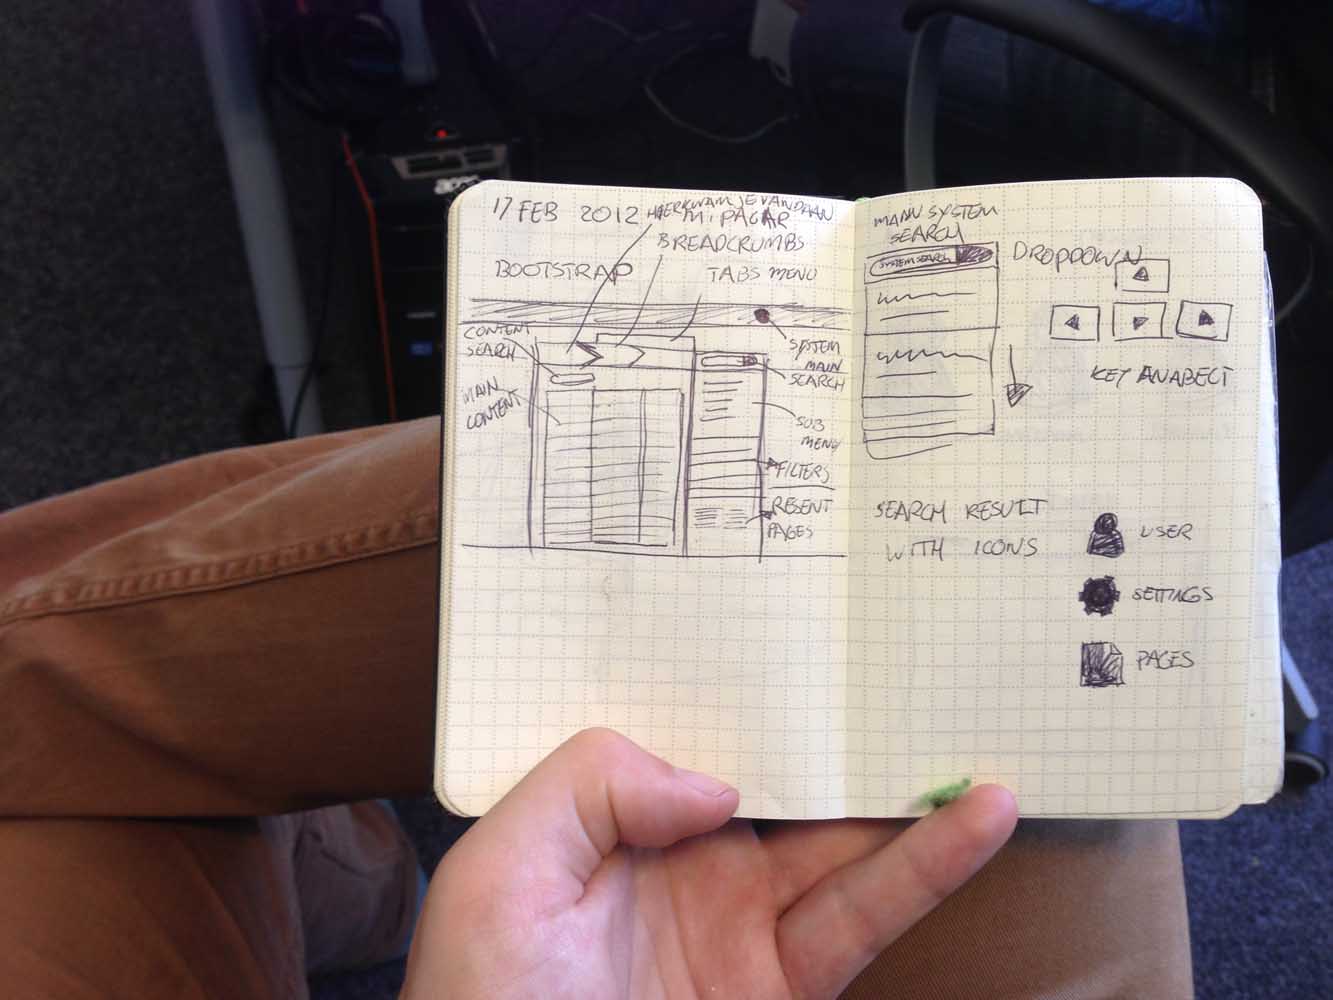 17 FEB 2012 HIERKWAM JE VANDAAN
MiPAGAR
BREADCRUMBS
BOOTSTRAP
TABS MENU
CONTENT
SEARCH
MAIN
CONTENT
SYSTEM
MAIN
SEARCH
SUB
MENU
FILTERS
RESENT
PAGES
MAIN SYSTEM
SEARCH
SYSTEM SEARCH
DROPDOWN
KEY ANABECT
SEARCH RESULT
WITH ICONS
USER
SETTINGS
PAGES
acer